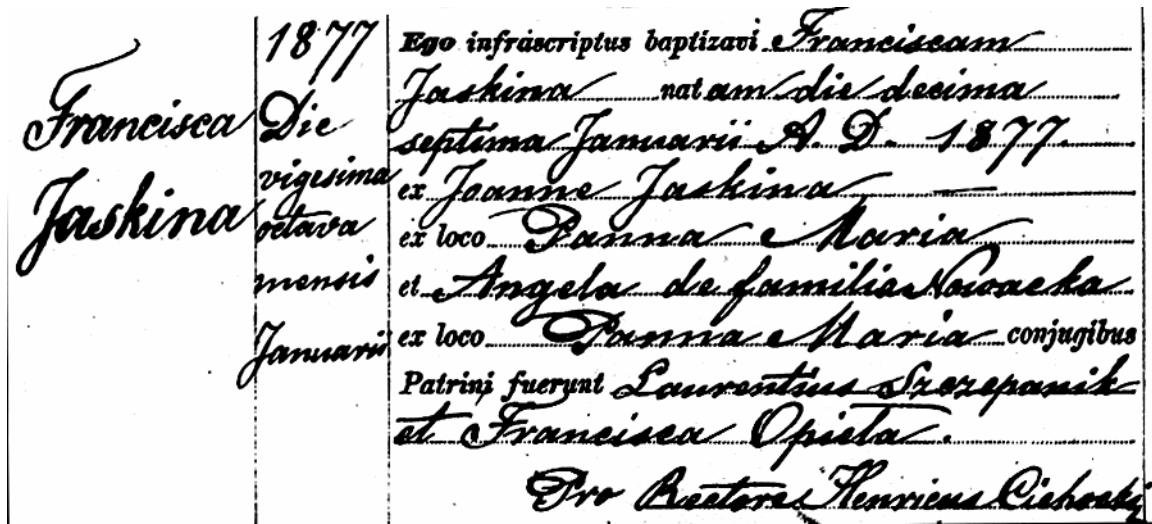 Francisca
Jaskina
1877
Die
vigesima
octava
mensis
Januarii
Ego infrascriptus baptizavi Franciscam
Jaskina natam die decima
septima Januarii A. D. 1877.
ex Joanne Jaskina —
ex loco Panna Maria
et Angela de familia Nowacka
ex loco Panna Maria conjugibus
Patrini fuerunt Laurentius Szczepanik
et Francisca Opiela.
Pro Rectore Henricus Cichocki